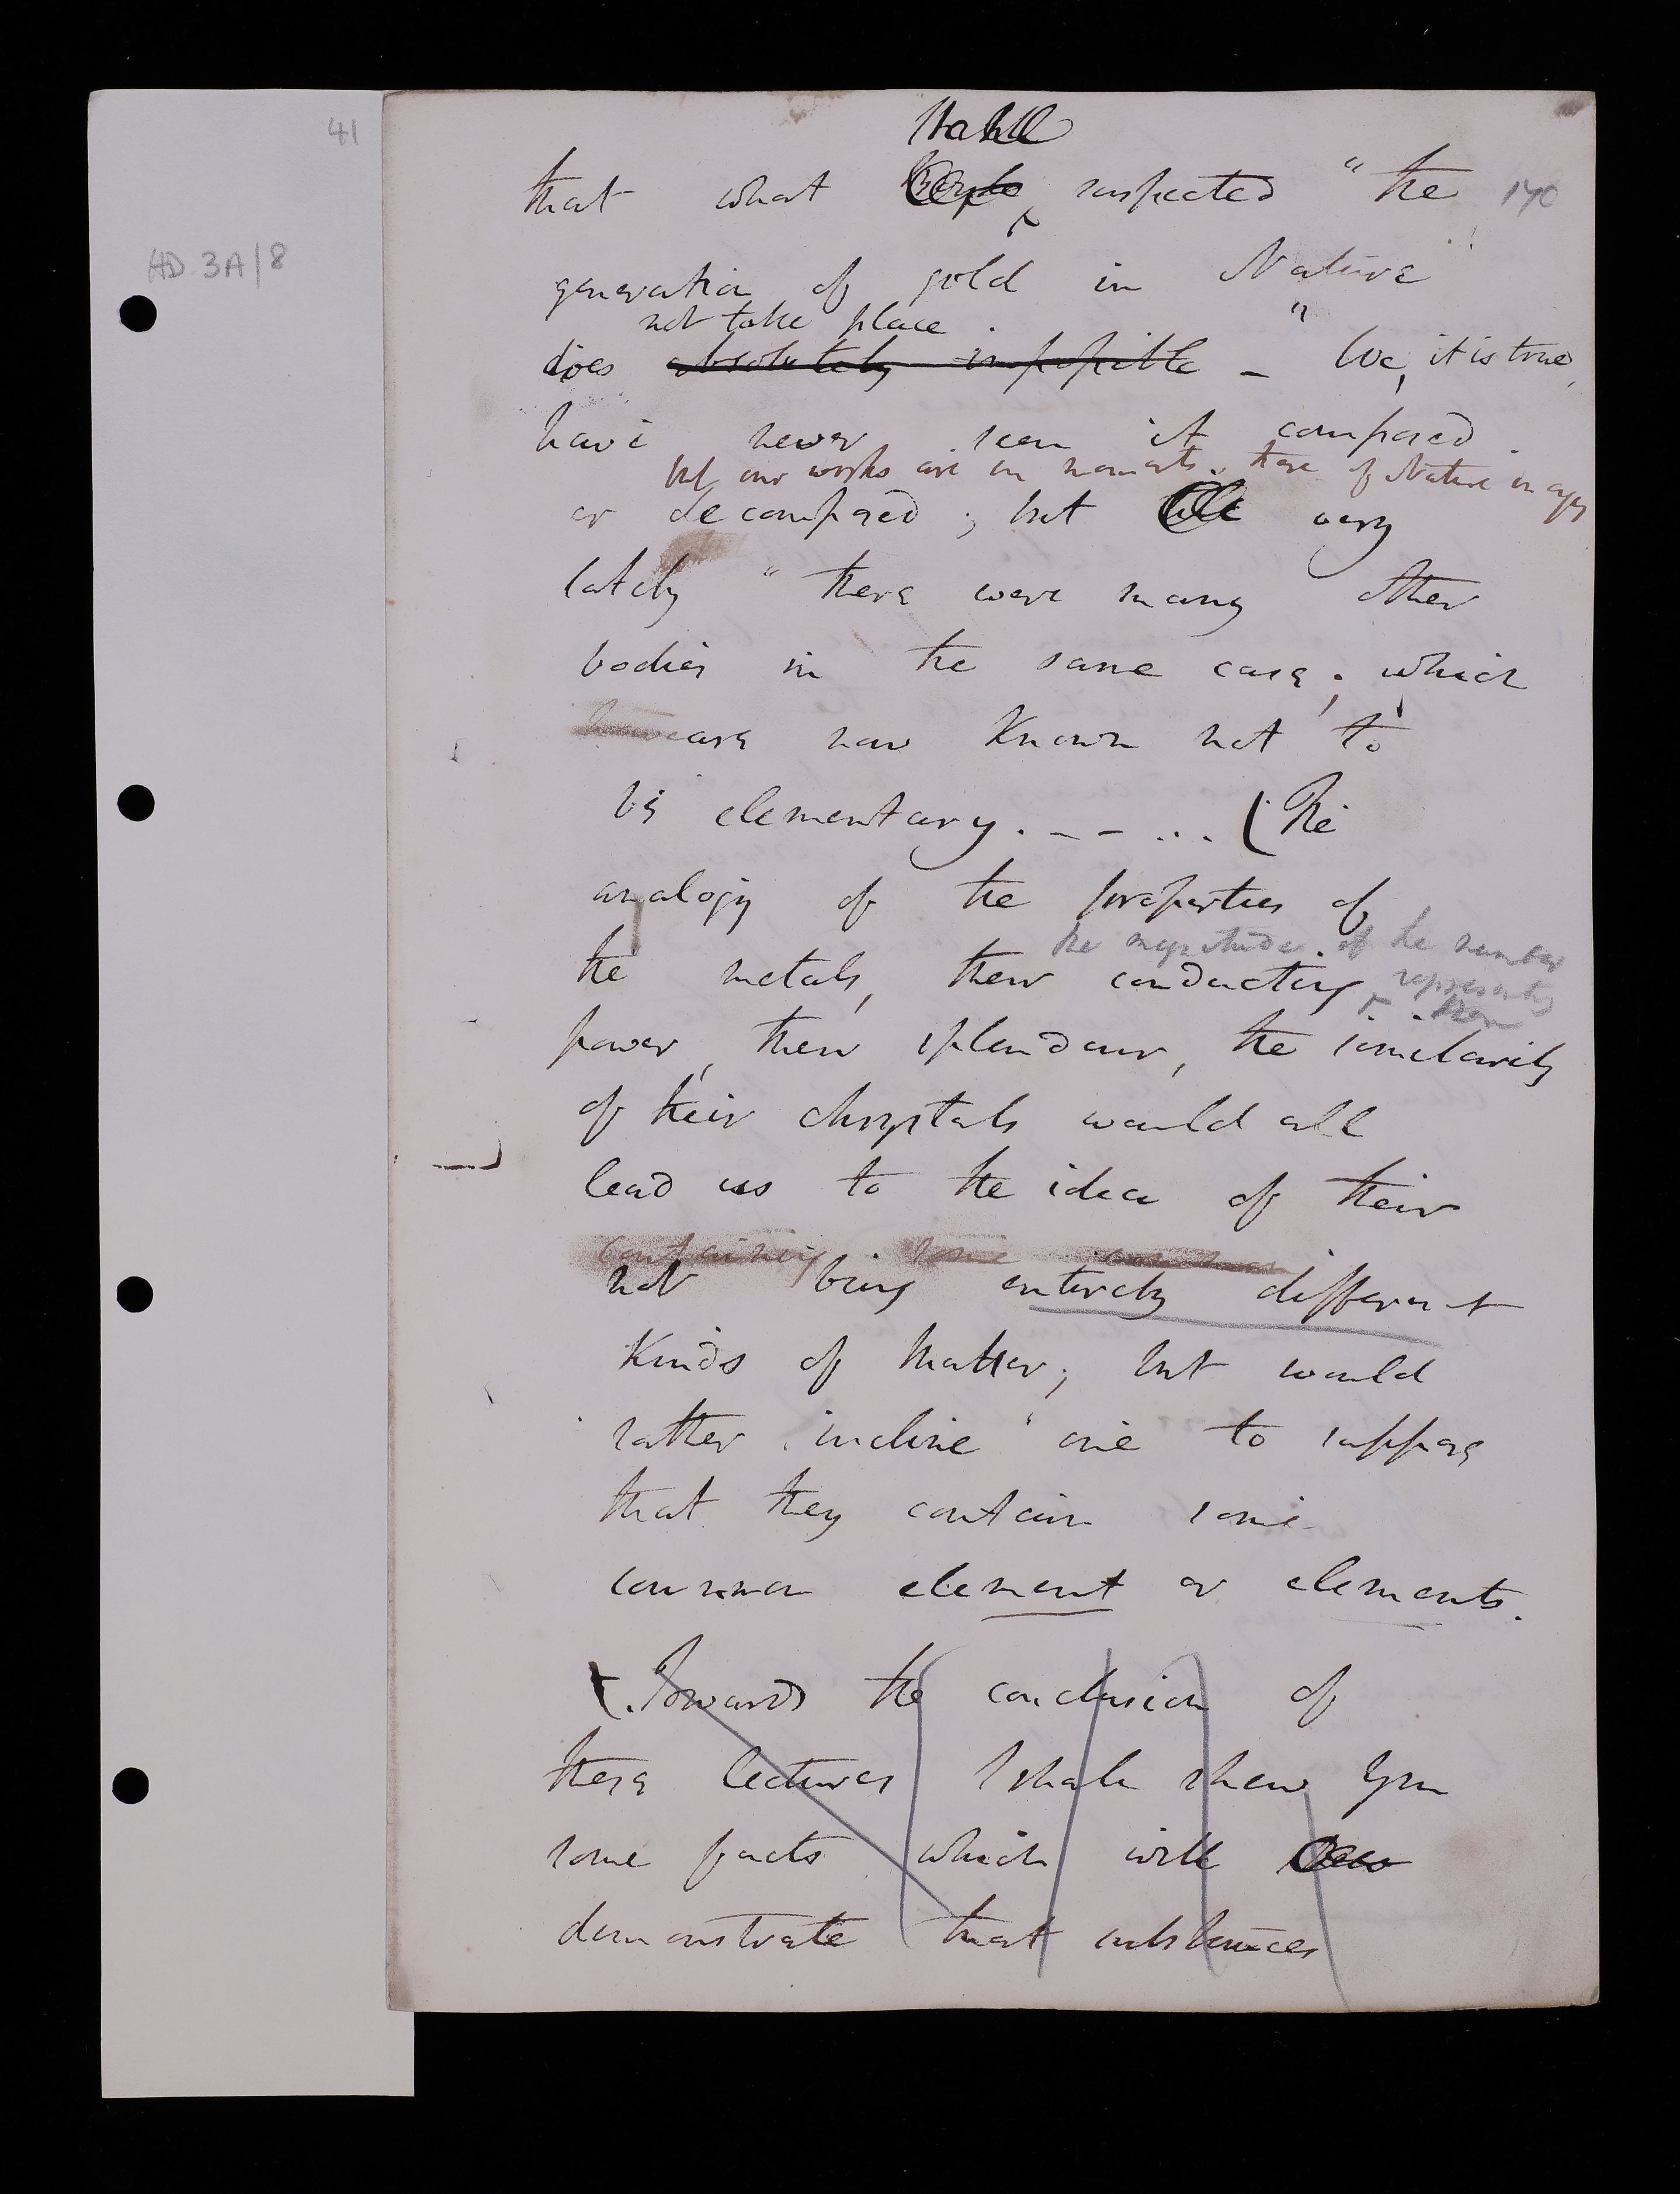 41
HD 3A/8
Stahl
that what suspected " the 140
generation of gold in Nature "
not take place .
does absolutely impossible – We, it is true,
have never seen it composed
but our works are in moments. those of Nature in ages
or decomposed ; but till very
lately " there were many other
bodies in the same case ; which
are now known not to
be elementary. – – . . . ( The
analogy of the properties of
the magnitude of the number
the metals, their conducting representing
them
power, their splendour, the similarity
of their chrystals would all
lead us to the idea of their
containing some common
not being entirely different
Kinds of Matter; but would
rather incline one to suppose
that they contain some
common element or elements.
(. Towards the conclusion of
these lectures I shall shew you
some facts which will
demonstrate that substances